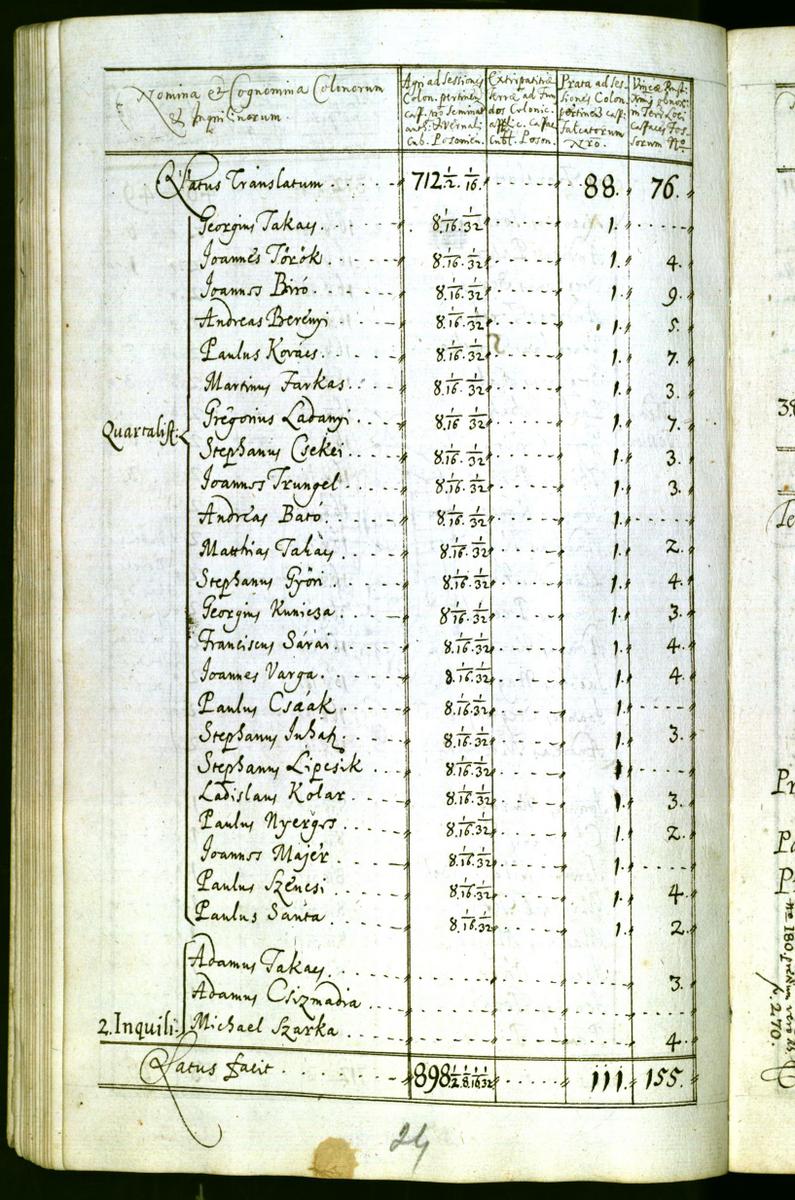 Nomina et Cognomina Colonorum & Inquilinorum.
Agri ad Sessiones Colon. pertinen. cap. pro Seminat.
Extirpatitiæ terræ ad Fundos Colonic. applic. capac. Cub. Poson.
Prata ad Sessiones Colon. pertinen. cap. falcatorum Nro.
Vineæ Fossorum No
Latus Translatum . . . 712. 1/2. 1/16. . . . . . 88. 76.
Georgius Takacs. . . . 8. 1/16. 1/32 . . . . . 1. . . . .
Joannes Török. . . . 8. 1/16. 1/32 . . . . . 1. 4.
Joannes Biró. . . . 8. 1/16. 1/32 . . . . . 1. 9.
Andreas Berényi . . . 8. 1/16. 1/32 . . . . . 1. 5.
Paulus Kovács. . . . 8. 1/16. 1/32 . . . . . 1. 7.
Martinus Farkas. . . . 8. 1/16. 1/32 . . . . . 1. 3.
Gregorius Ladanyi . . . 8. 1/16. 1/32 . . . . . 1. 7.
Quartalist:
Stephanus Csekei . . . 8. 1/16. 1/32 . . . . . 1. 3.
Joannes Trungel . . . 8. 1/16. 1/32 . . . . . 1. 3.
Andreas Bató. . . . 8. 1/16. 1/32 . . . . . 1. . . . .
Matthias Takacs . . . 8. 1/16. 1/32 . . . . . 1. 2.
Stephanus Györi . . . 8. 1/16. 1/32 . . . . . 1. 4.
Georgius Kunicza . . . 8. 1/16. 1/32 . . . . . 1. 3.
Franciscus Sárai . . . 8. 1/16. 1/32 . . . . . 1. 4.
Joannes Varga. . . . 8. 1/16. 1/32 . . . . . 1. 4.
Paulus Csáak . . . 8. 1/16. 1/32 . . . . . 1. . . . .
Stephanus Juhasz . . . 8. 1/16. 1/32 . . . . . 1. 3.
Stephanus Lipcsik . . . 8. 1/16. 1/32 . . . . . 1. . . . .
Ladislaus Kolar. . . . 8. 1/16. 1/32 . . . . . 1. 3.
Paulus Nyerges . . . 8. 1/16. 1/32 . . . . . 1. 2.
Joannes Majer . . . 8. 1/16. 1/32 . . . . . 1. . . . .
Paulus Szencsi . . . 8. 1/16. 1/32 . . . . . 1. 4.
Paulus Santa . . . 8. 1/16. 1/32 . . . . . 1. 2.
Adamus Takacs. . . . . . . . . . . . 3.
Adamus Csizmadia . . . . . . . . . . . .
2. Inquili:
Michael Szarka . . . . . . . . . . . 4.
Latus facit . . . 898. 1/2. 1/8. 1/16. 1/32 . . . . . 111. 155.
24